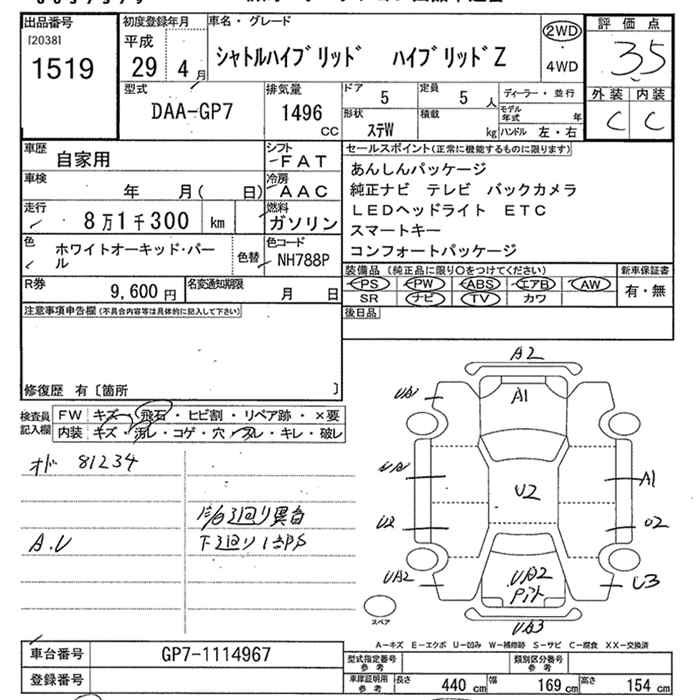 出品番号
[2038]
1519
初度登録年月
平成
29年 4月
車名・グレード
シャトルハイブリッド ハイブリッドZ
2WD
・
4WD
評価点
3.5
外装 内装
C C
型式
DAA-GP7
排気量
1496
CC
ドア
5
定員
5人
ディーラー・並行
形状
ステW
積載
kg
モデル年式 年
ハンドル 左・右
車歴
自家用
シフト
FAT
車検
年 月( 日)
冷房
AAC
走行
8万1千300 km
燃料
ガソリン
色
ホワイトオーキッド・パール
色替
色コード
NH788P
R券
9,600円
名変通知期限
月 日
セールスポイント(正常に機能するものに限ります)
あんしんパッケージ
純正ナビ テレビ バックカメラ
LEDヘッドライト ETC
スマートキー
コンフォートパッケージ
装備品(純正品に限り○をつけてください)
PS PW ABS エアB AW
SR ナビ TV カワ
新車保証書
有・無
後日品
注意事項申告欄(不具合内容等は具体的に記入して下さい)
修復歴 有〔箇所 〕
検査員記入欄
FW キズ・飛石・ヒビ割・リペア跡・×要
内装 キズ・汚レ・コゲ・穴・スレ・キレ・破レ
オド 81234
A.U
下廻り1部S
A2
A1
UA
A1
U2
U2
UA2
U3
UA2
UA3
スペア
A-キズ E-エクボ U-凹み W-補修跡 S-サビ C-腐食 XX-交換済
車台番号
GP7-1114967
登録番号
型式指定番号
参考
類別区分番号
参考
車庫証明用
参考
長さ 440 cm 幅 169 cm 高さ 154 cm